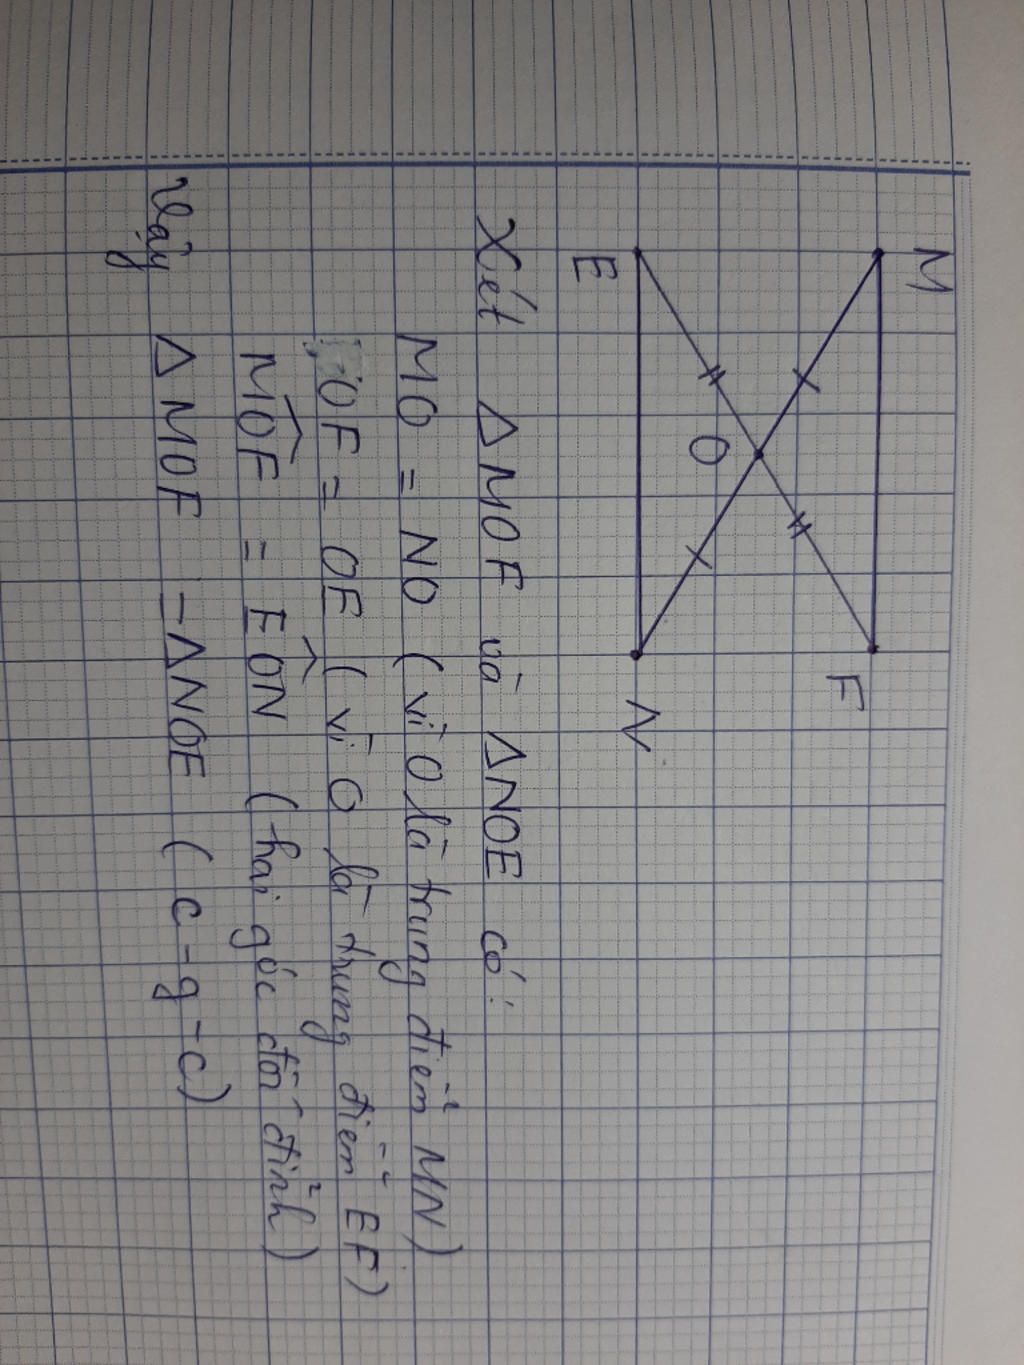 M
F
O
E
N
Xét ΔMOF và ΔNOE có:
MO = NO (vì O là trung điểm MN)
OF = OE (vì O là trung điểm EF)
\widehat{MOF} = \widehat{EON} (hai góc đối đỉnh)
Vậy ΔMOF = ΔNOE (c-g-c)